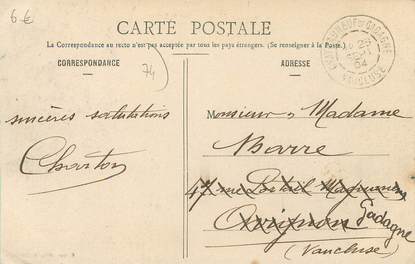 6 €
CARTE POSTALE
La Correspondance au recto n'est pas acceptée par tous les pays étrangers. (Se renseigner à la Poste).
CORRESPONDANCE
74
ADRESSE
CHATEAUNEUF DE GADAGNE
04
VAUCLUSE
sincères salutations
Charton
Monsieur & Madame
Barre
47 rue
Avignon Gadagne
(Vaucluse)